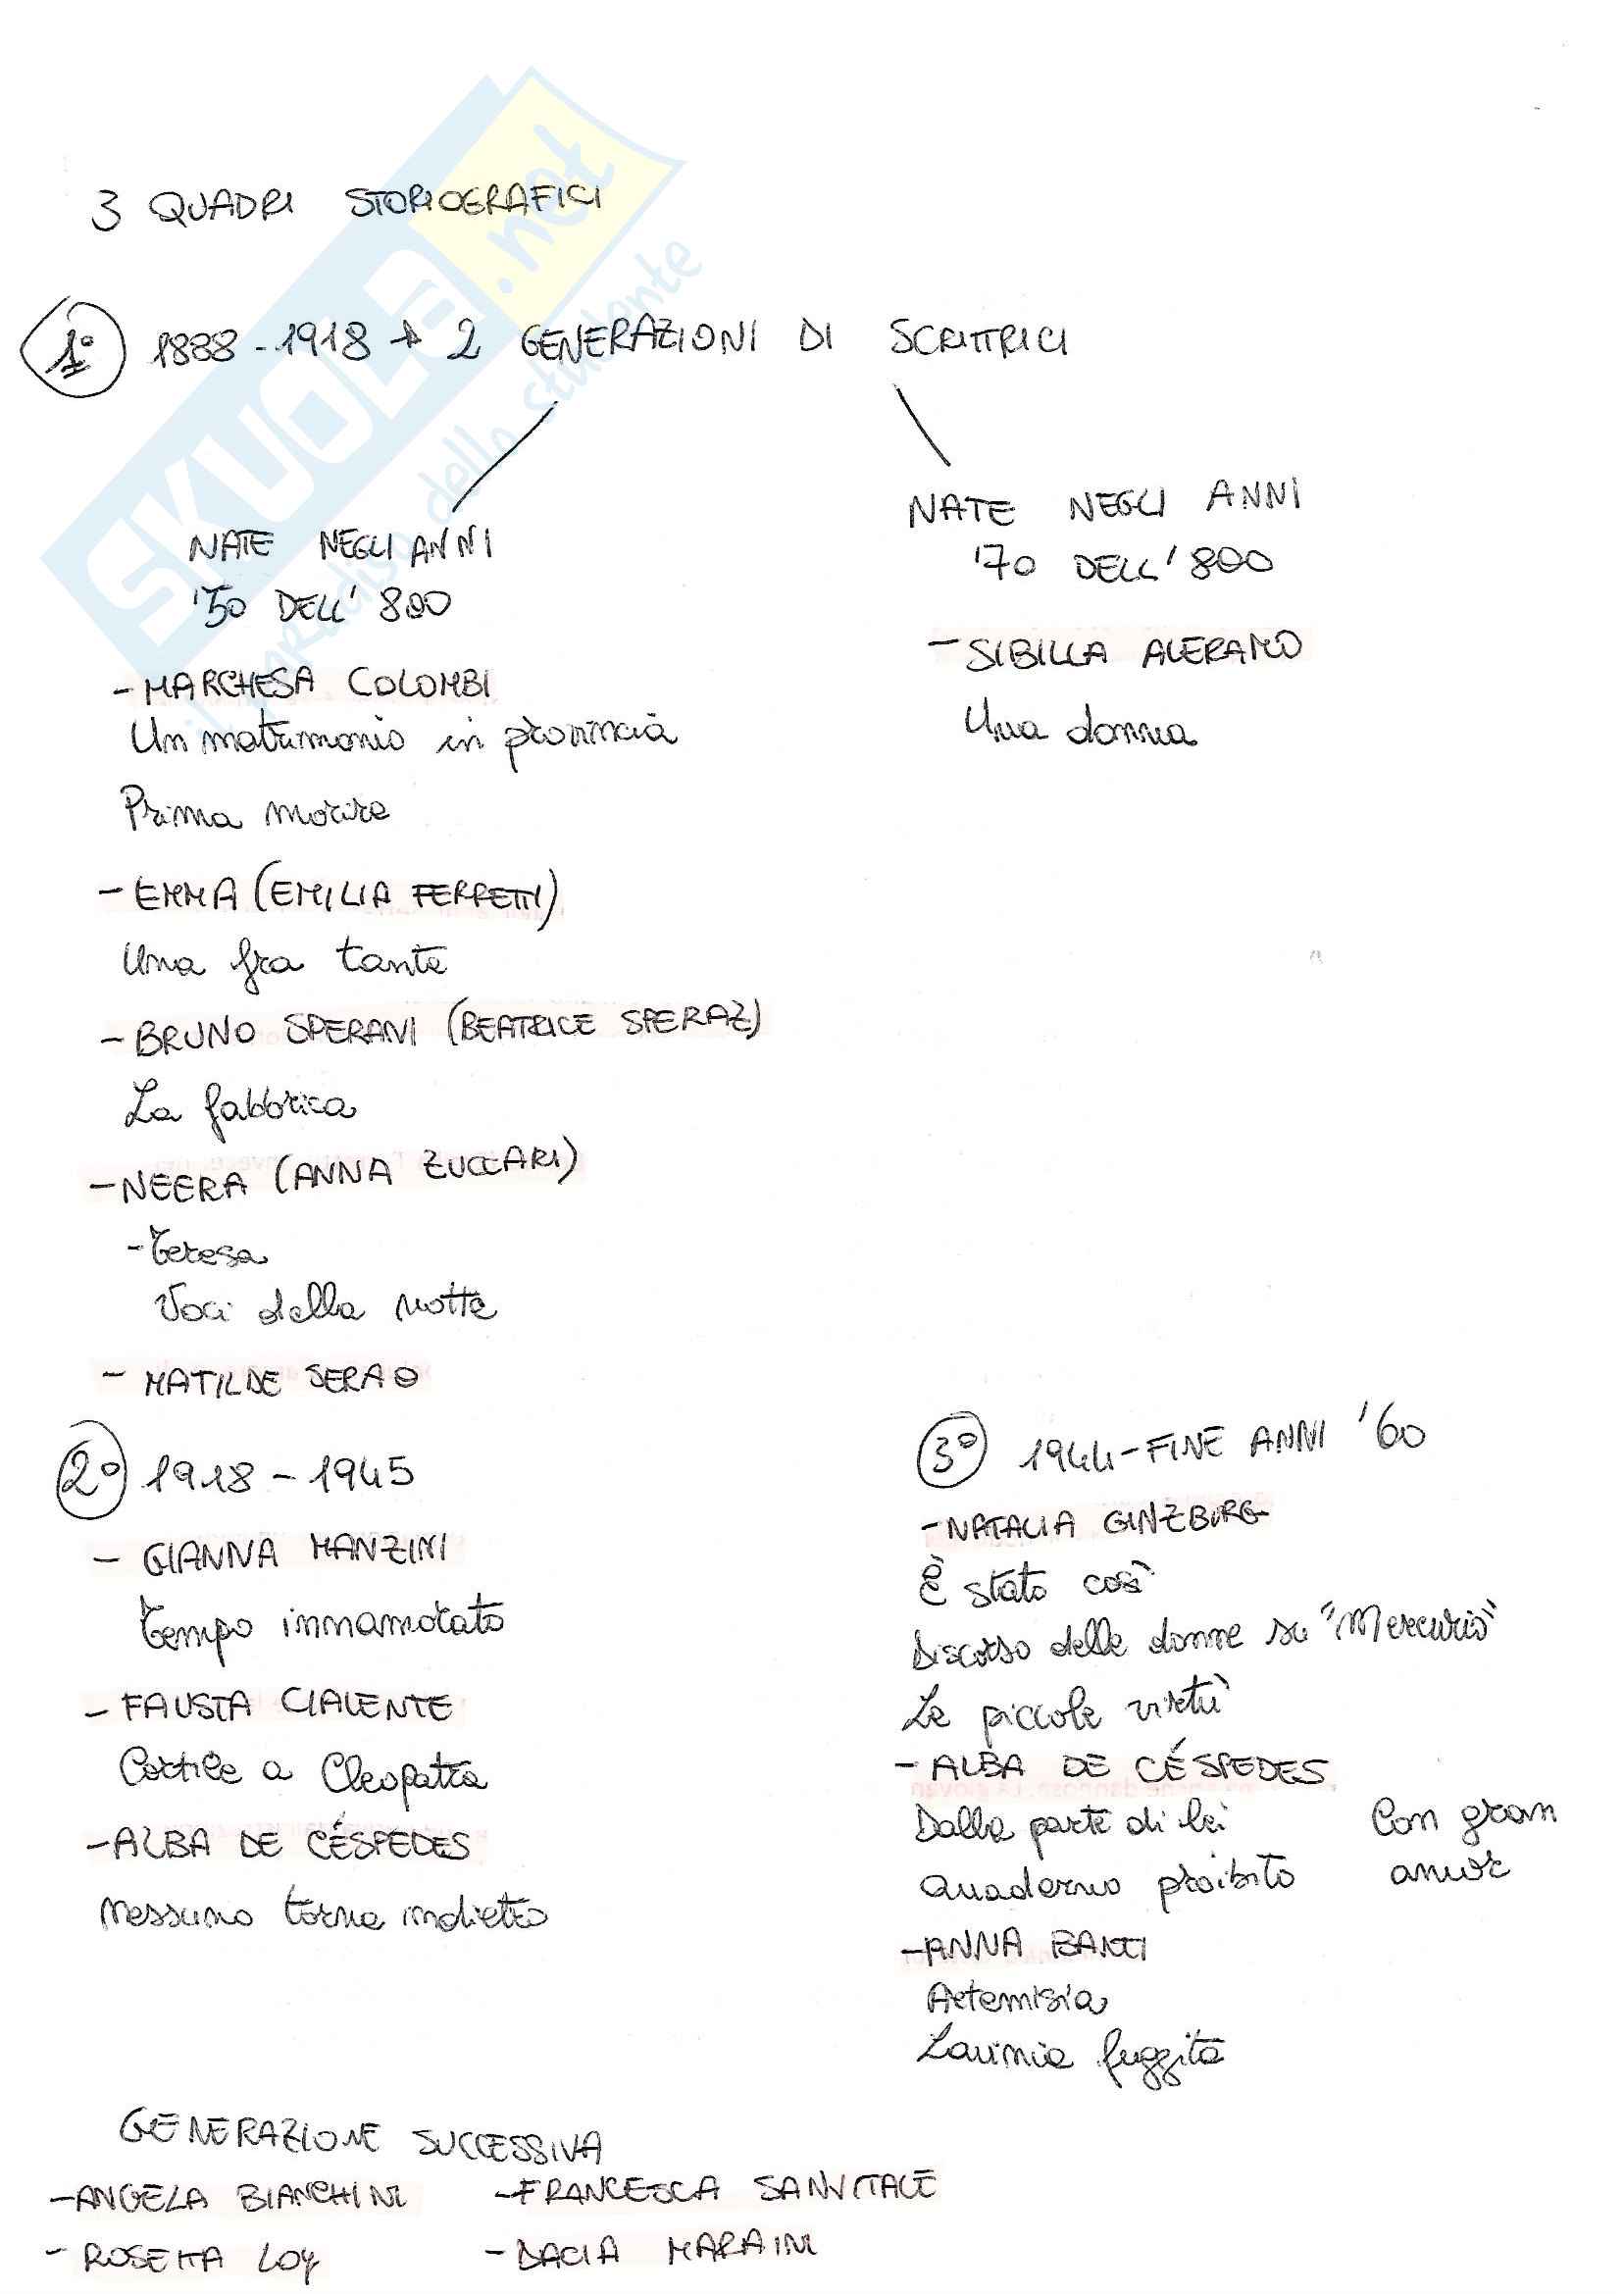 3 QUADRI STORIOGRAFICI
1° 1888-1918 → 2 GENERAZIONI DI SCRITTRICI
NATE NEGLI ANNI
'50 DELL'800
- MARCHESA COLOMBI
Un matrimonio in provincia
Prima morire
- EMMA (EMILIA FERRETTI)
Una fra tante
- BRUNO SPERANI (BEATRICE SPERAZ)
La fabbrica
- NEERA (ANNA ZUCCARI)
- Teresa
Voci della notte
- MATILDE SERAO
NATE NEGLI ANNI
'70 DELL'800
- SIBILLA ALERAMO
Una donna
2° 1918-1945
- GIANNA MANZINI
Tempo innamorato
- FAUSTA CIALENTE
Cortile a Cleopatra
- ALBA DE CÉSPEDES
Nessuno torna indietro
3° 1944-FINE ANNI '60
- NATALIA GINZBURG
È stato così
Discorso delle donne su "Mercurio"
Le piccole virtù
- ALBA DE CÉSPEDES
Dalla parte di lei
Quaderno proibito
Con gran
amor
- ANNA BANTI
Artemisia
Lavinia fuggita
GENERAZIONE SUCCESSIVA
- ANGELA BIANCHINI
- FRANCESCA SANVITALE
- ROSETTA LOY
- DACIA MARAINI
SKUOLA.net
il paradiso dello studente